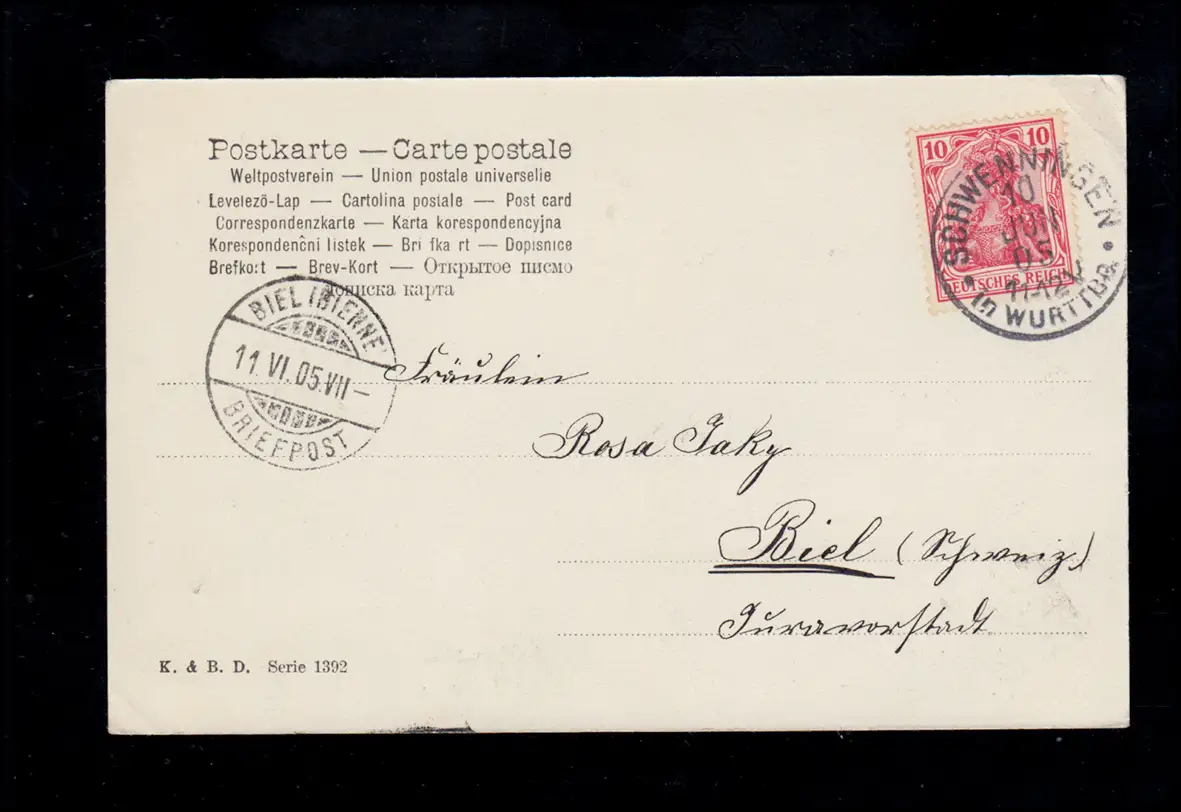 Postkarte — Carte postale
Weltpostverein — Union postale universelle
Levelezö-Lap — Cartolina postale — Post card
Correspondenzkarte — Karta korespondencyjna
Korespondenčni listek — Bri fka rt — Dopisnice
Brefkort — Brev-Kort — Открытое писмо
Дописка карта
10 10
DEUTSCHES REICH
SCHWENNINGEN
10
JUN
05
11-12N
in WÜRTTBG.
BIEL (BIENNE)
11.VI.05.VII—
BRIEFPOST
Fräulein
Rosa Jaky
Biel (Schweiz)
Juravorstadt
K. & B. D. Serie 1392